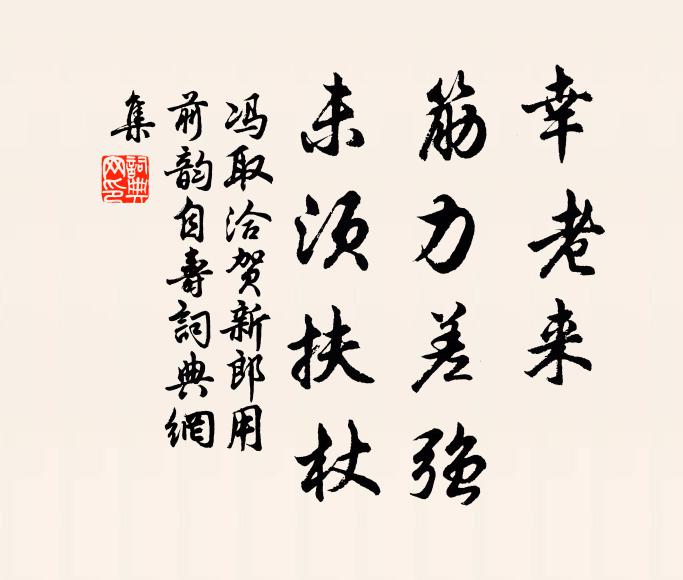 幸老来
筋力差强
未须扶杖
冯取洽贺新郎用
前韵自寿詞典網
集
詞典
网印